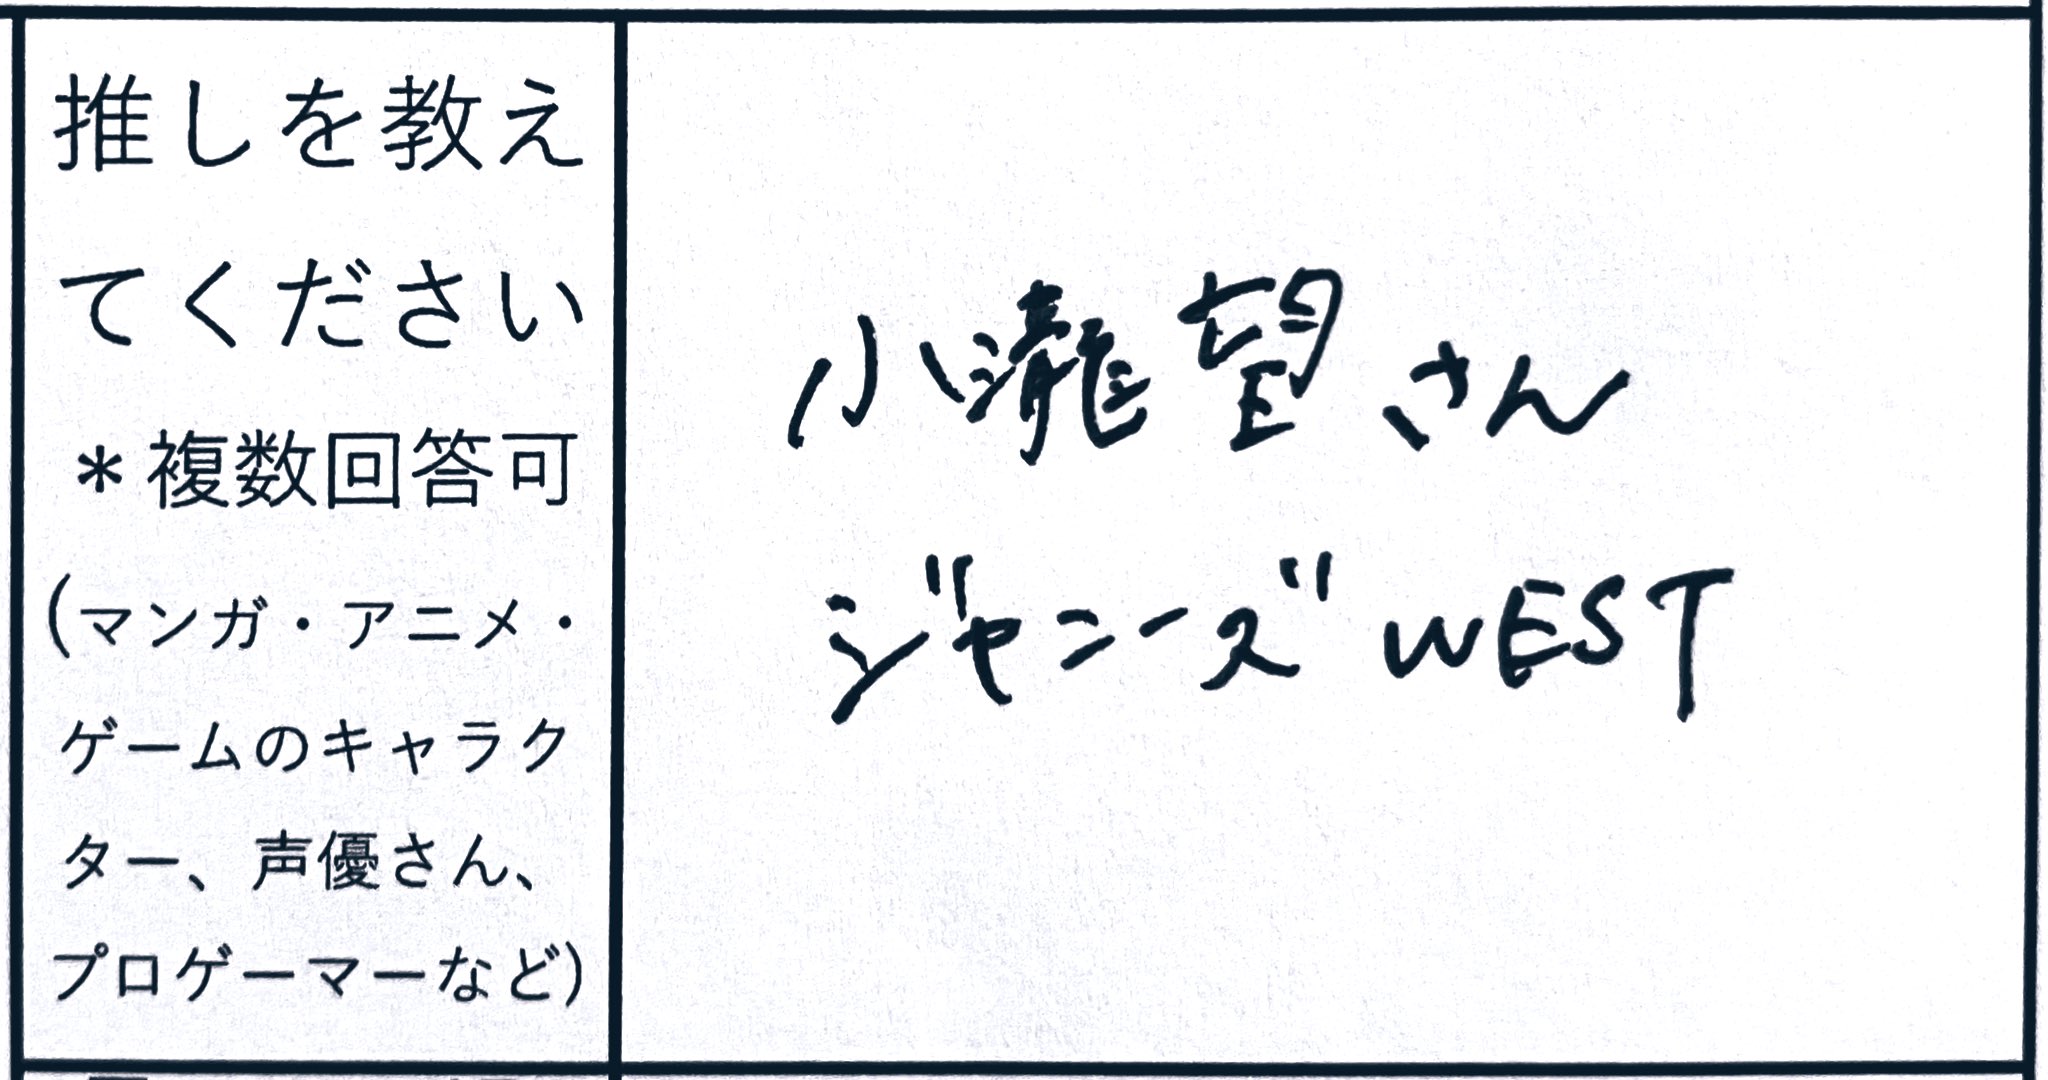 推しを教え
てください
*複数回答可
(マンガ・アニメ・
ゲームのキャラク
ター、声優さん、
プロゲーマーなど)
小瀧望さん
ジャニーズWEST